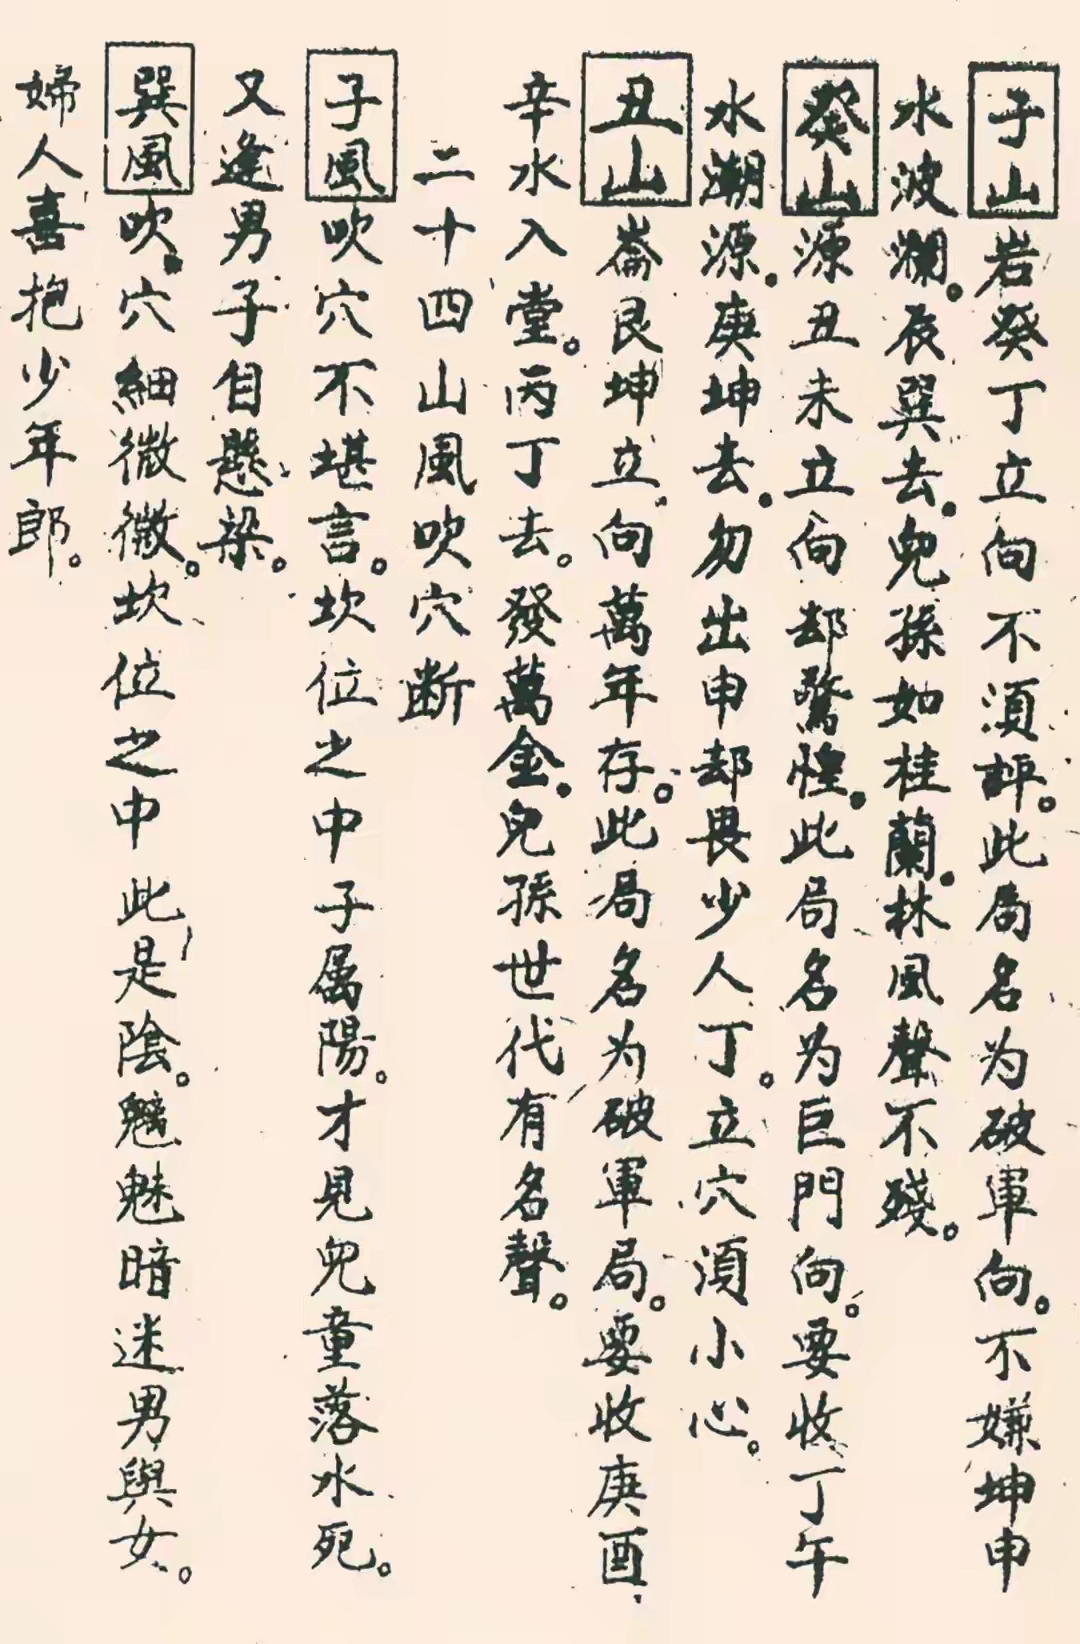 子山岩癸丁立向不須評。此局名为破軍向。不嫌坤申
水波瀾。辰巽去。兒孫如桂蘭。林風聲不殘。
癸山源丑未立向却驚惶。此局名为巨門向。要收丁午
水潮源。庚坤去。勿出申却畏少人丁。立穴須小心。
丑山崙艮坤立向萬年存。此局名为破軍局。要收庚酉
辛水入堂。丙丁去。發萬金。兒孫世代有名聲。
二十四山風吹穴断
子風吹穴不堪言。坎位之中子属陽。才見兒童落水死。
又逢男子自懸梁。
巽風吹穴細微微。坎位之中此是陰。魑魅暗迷男與女。
婦人喜抱少年郎。